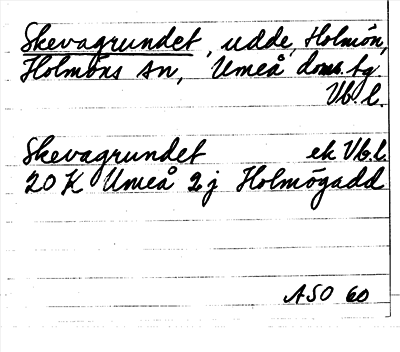 Skevagrundet, udde, Holmön,
Holmöns sn, Umeå doms.tg.
Vb.l.
Skevagrundet ek Vb.l.
20 K Umeå 2 j Holmögadd
ASO 60